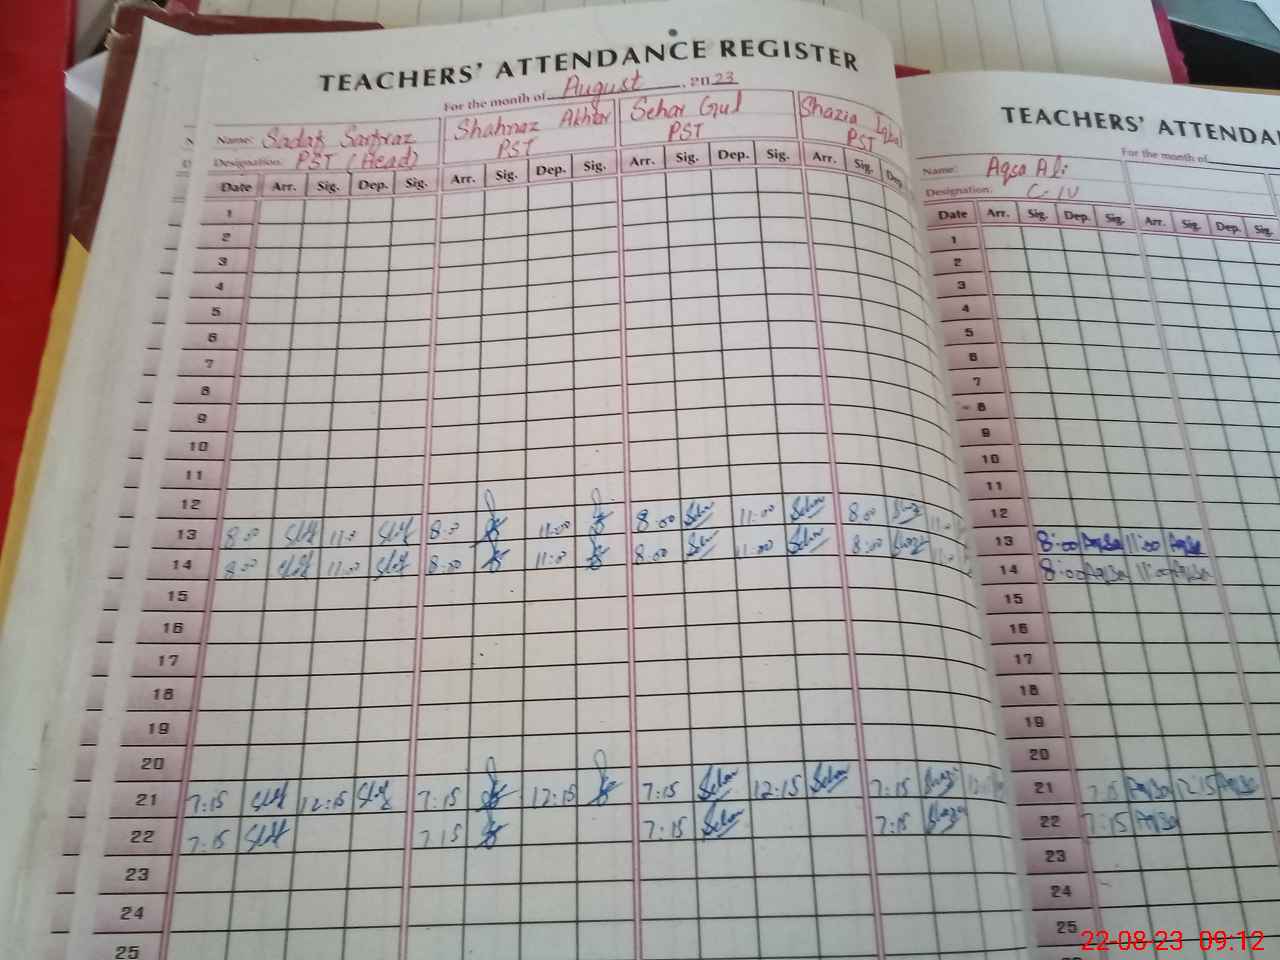 TEACHERS' ATTENDANCE REGISTER
For the month of August, 2023
Name: Sadaf Sarfraz Shahnaz Akhtar Sehar Gul Shazia Iqbal
Designation: PST (Head) PST PST PST
Date Arr. Sig. Dep. Sig. Arr. Sig. Dep. Sig. Arr. Sig. Dep. Sig. Arr. Sig. Dep.
1
2
3
4
5
6
7
8
9
10
11
12
13 8:00 11:00 8:00 11:00 8:00 Sehar 11:00 Sehar 8:00 11:00
14 8:00 11:00 8:00 11:00 8:00 Sehar 11:00 Sehar 8:00 11:00
15
16
17
18
19
20
21 7:15 12:15 7:15 12:15 7:15 Sehar 12:15 Sehar 7:15
22 7:15 7:15 7:15 Sehar 7:15
23
24
25
TEACHERS' ATTENDA
For the month of
Name: Aqsa Ali
Designation: C-IV
Date Arr. Sig. Dep. Sig. Arr. Sig. Dep. Sig.
1
2
3
4
5
6
7
8
9
10
11
12
13 8:00 Aqsa 11:00 Aqsa
14 8:00 Aqsa 11:00 Aqsa
15
16
17
18
19
20
21 7:15 Aqsa 12:15 Aqsa
22 7:15 Aqsa
23
24
25
22-08-23 09:12